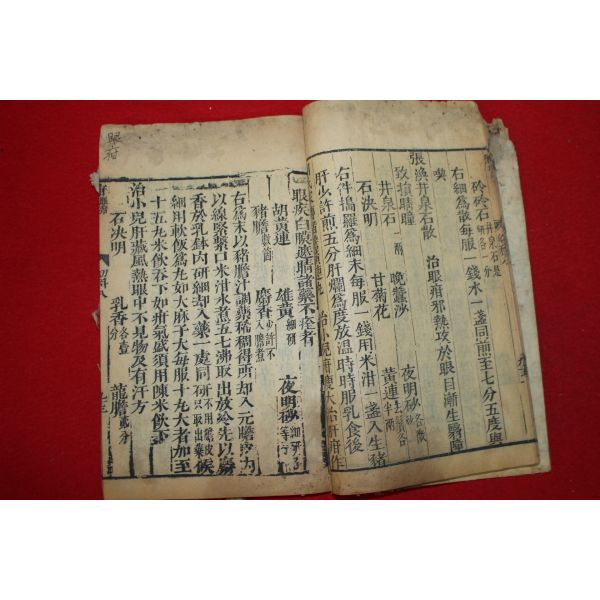 砱砱石
右細爲散每服一錢水一盞同煎至七分五度與
喫
張渙井泉石散 治眼疳邪熱攻於眼目漸生翳障
致損睛瞳
井泉石一兩 晚蠶沙 夜明砂各微
石決明 甘菊花 黃連
右件搗羅爲細末每服一錢用米泔一盞入生豬
肝少許煎五分肝爛爲度放溫時時服乳食後
眼疾白膜遮睛諸藥不痊者
胡黃連 雄黃細研 夜明砂
豬膽 麝香少許不入膽煮
右爲末以豬膽汁調藥稀稠得所却入元膽內
以線緊繫口米泔水煮五七沸取出放冷先以麝
香於乳鉢內研細却入藥一處同研不用膽皮只取出藥候
細用軟飯爲丸如大麻子大每服十丸大者加至
十五丸米飲吞下如疳氣盛須用陳米飲下
治小兒肝藏風熱眼中不見物及有汗方
石決明 乳香各壹分 龍膽貳分